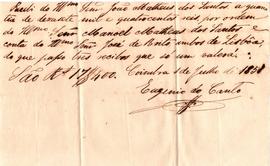 Recebi do Illmo Snr João Matheus dos Santos a quan-
tia de dezasete mil e quatrocentos reis por ordem
do Illmo Snr Manoel Matheus dos Santos e
conta do Illmo Snr José de Brito ambos de Lisboa,
do que passo tres recibos que só um valerá.
São Rs 17$400. Coimbra 1 de Julho de 18
Eugenio do Canto